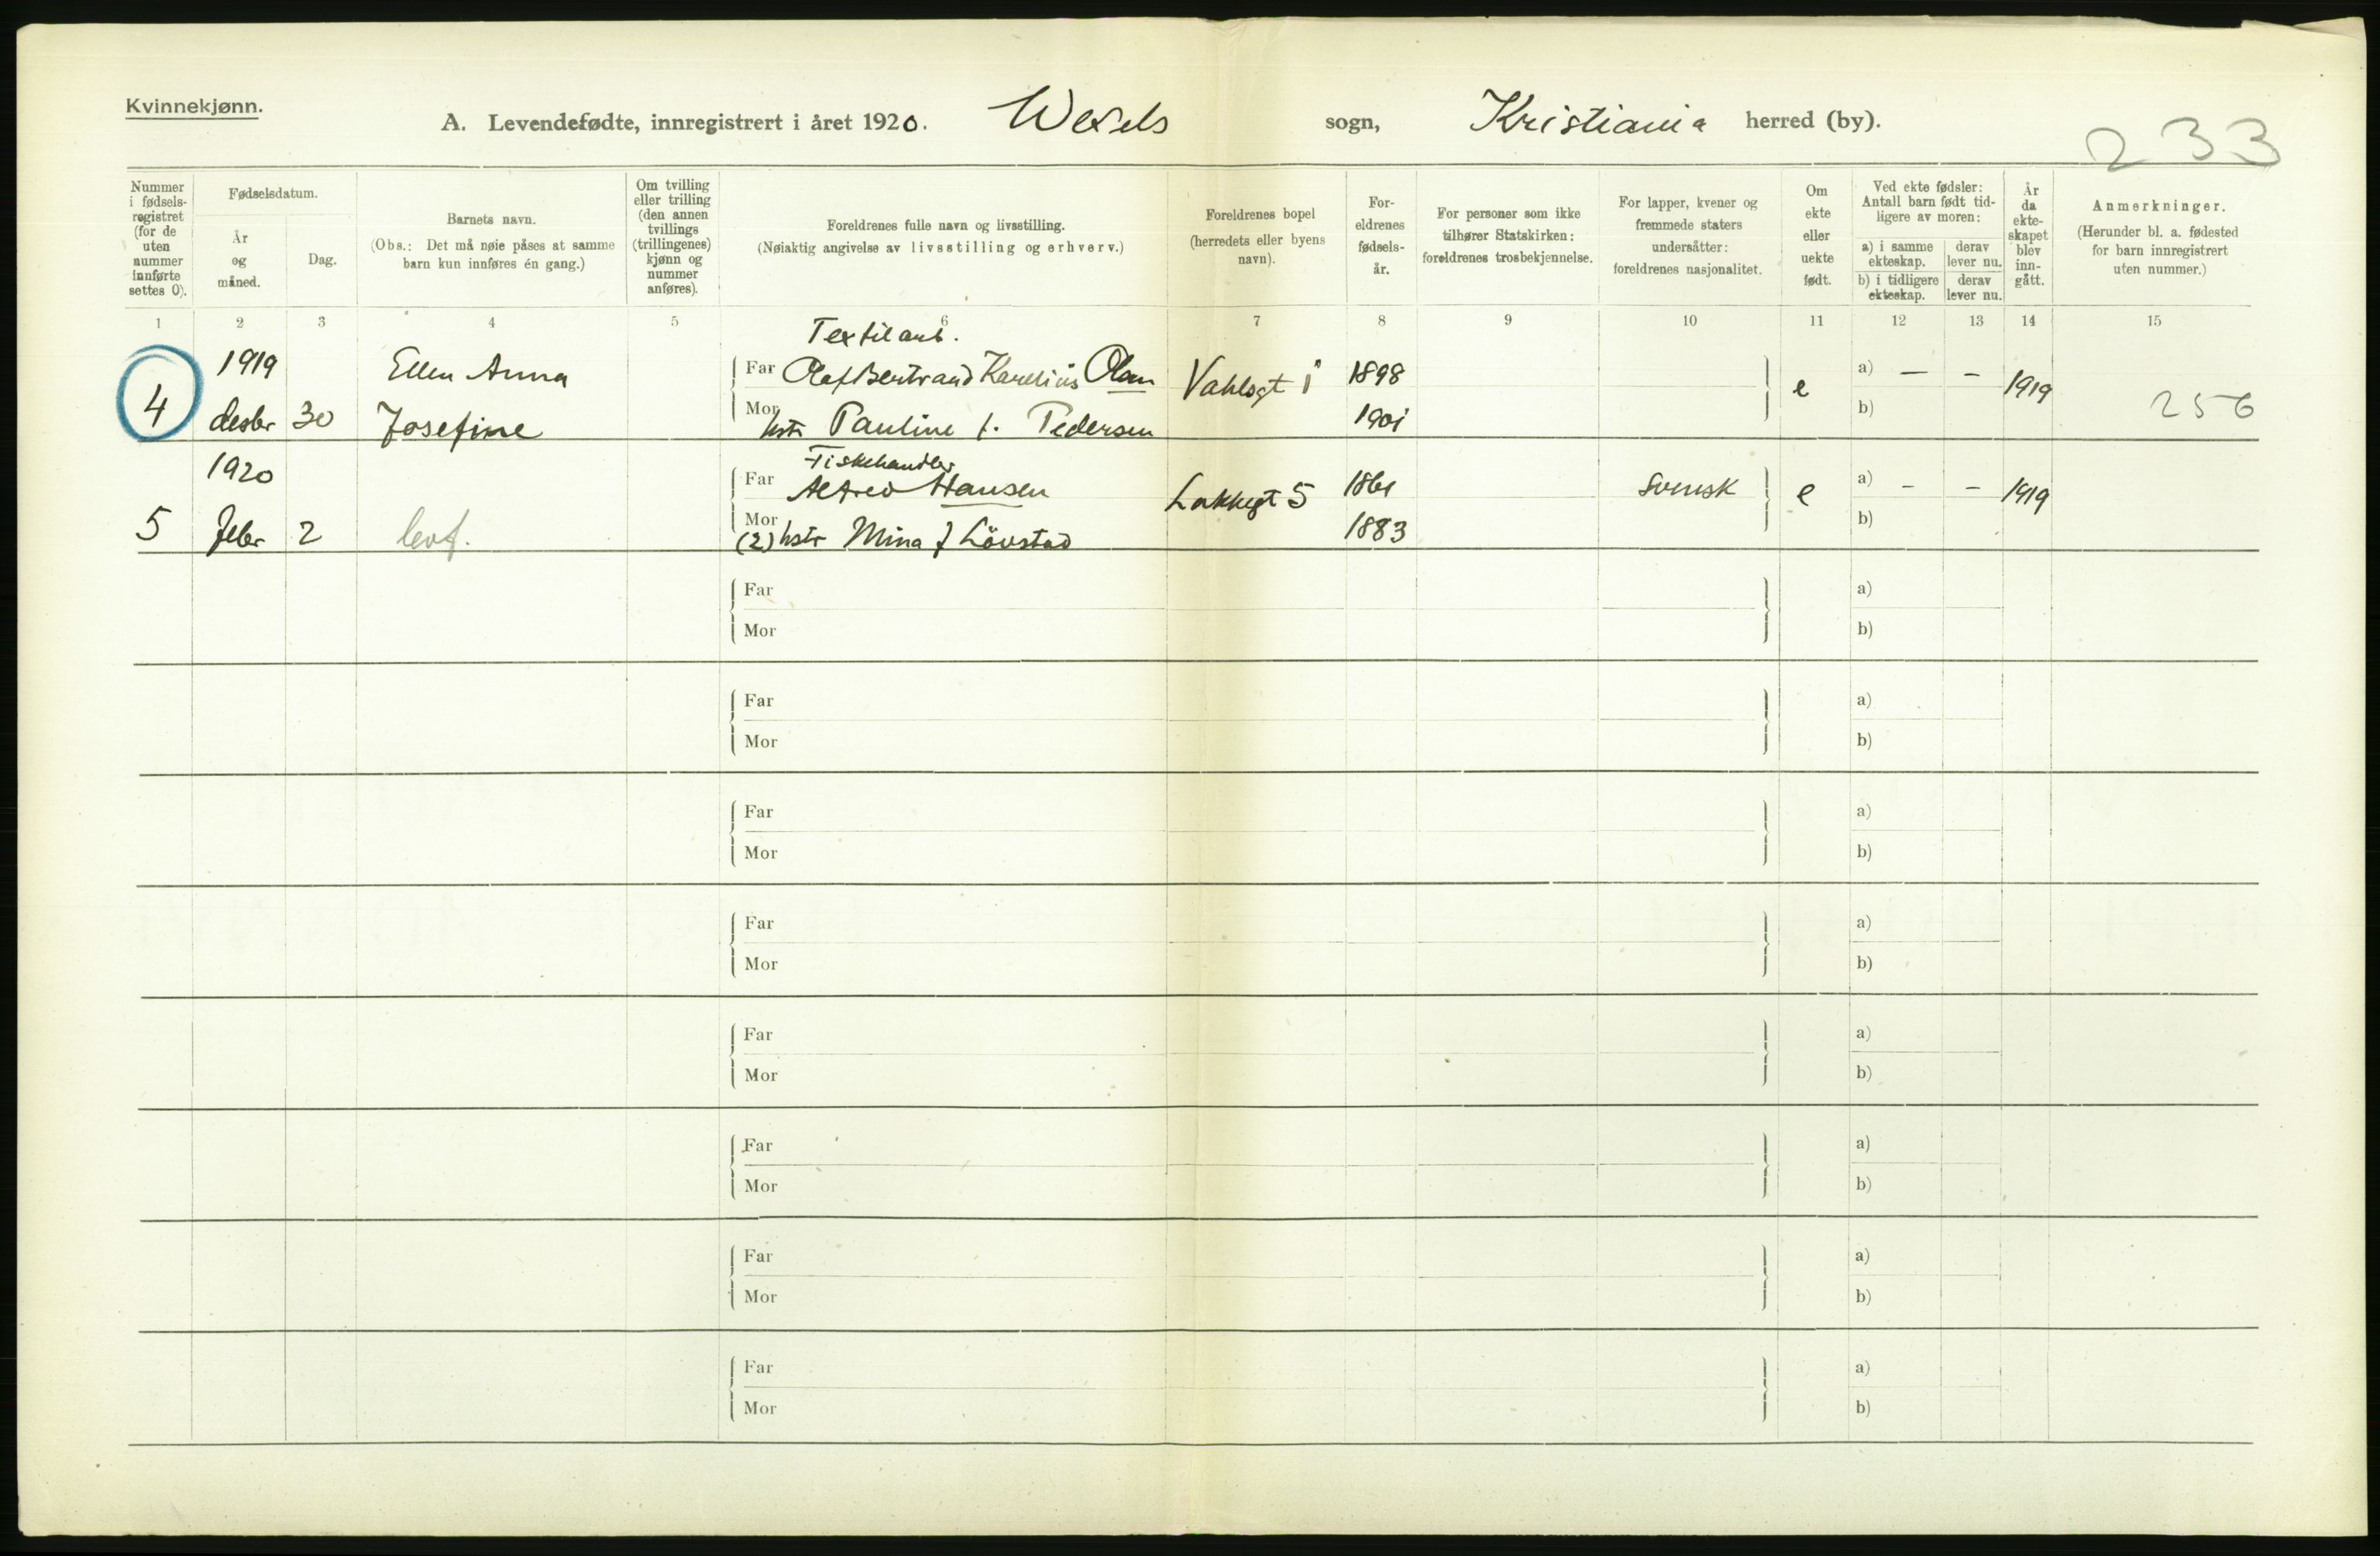 Kvinnekjønn.
A. Levendefødte, innregistrert i året 1920. Wexels sogn, Kristiania herred (by).
233
Nummer i fødsels-registret (for de uten nummer innførte settes 0).
Fødselsdatum.
År og måned.
Dag.
Barnets navn.
(Obs.: Det må nøie påses at samme barn kun innføres én gang.)
Om tvilling eller trilling (den annen tvillings (trillingenes) kjønn og nummer anføres).
Foreldrenes fulle navn og livsstilling.
(Nøiaktig angivelse av livsstilling og erhverv.)
Foreldrenes bopel (herredets eller byens navn).
For-eldrenes fødsels-år.
For personer som ikke tilhører Statskirken: foreldrenes trosbekjennelse.
For lapper, kvener og fremmede staters undersåtter: foreldrenes nasjonalitet.
Om ekte eller uekte født.
Ved ekte fødsler: Antall barn født tid-ligere av moren:
a) i samme ekteskap.
derav lever nu.
b) i tidligere ekteskap.
derav lever nu.
År da ekte-skapet blev inn-gått.
Anmerkninger.
(Herunder bl. a. fødested for barn innregistrert uten nummer.)
1 2 3 4 5 6 7 8 9 10 11 12 13 14 15
Textilarb.
1919 Ellen Anna Far Olaf Bertrand Karelius Olsen Vahlsgt 1 1898 e a) — – 1919
4 desbr 30 Josefine Mor hstr Pauline f. Pedersen 1901 b) 256
Fiskehandler
1920 Far Alfred Hansen Lakkegt 5 1861 svensk e a) – – 1919
5 febr 2 levf. Mor (2) hstr Mina f Lövstad 1883 b)
Far a)
Mor b)
Far a)
Mor b)
Far a)
Mor b)
Far a)
Mor b)
Far a)
Mor b)
Far a)
Mor b)
Far a)
Mor b)
Far a)
Mor b)